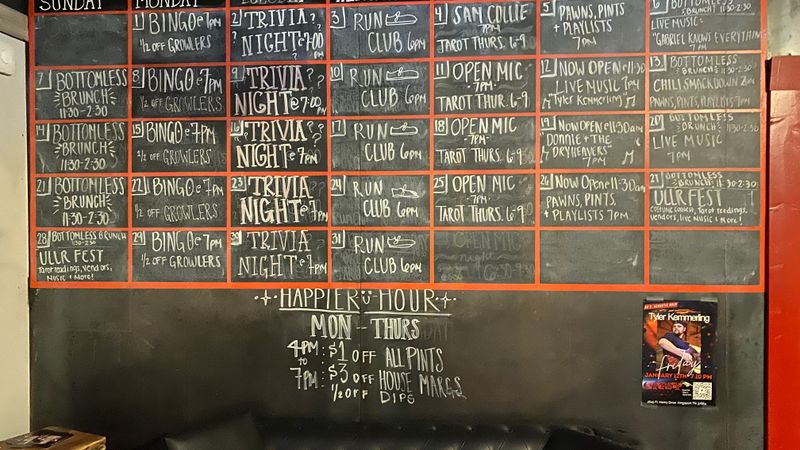 SUNDAY
MONDAY
1 BINGO @ 7PM
1/2 OFF GROWLERS
2 TRIVIA
NIGHT @ 7:00 PM
3 RUN
CLUB 6PM
4 SAM COLLIE
7PM
TAROT THURS. 6-9
5 PAWNS, PINTS
+ PLAYLISTS
7PM
6 BOTTOMLESS
BRUNCH 11:30-2:30
LIVE MUSIC-
"GABRIEL KNOWS EVERYTHING"
7 PM
7 BOTTOMLESS
BRUNCH
11:30-2:30
8 BINGO @ 7PM
1/2 OFF GROWLERS
9 TRIVIA
NIGHT @ 7:00 PM
10 RUN
CLUB 6PM
11 OPEN MIC
-7PM-
TAROT THUR. 6-9
12 NOW OPEN @ 11:30AM
LIVE MUSIC 7PM
"Tyler Kemmerling"
13 BOTTOMLESS
BRUNCH 11:30-2:30
CHILI SMACKDOWN 2PM
PAWNS, PINTS, PLAYLISTS 7PM
14 BOTTOMLESS
BRUNCH
11:30-2:30
15 BINGO @ 7PM
1/2 OFF GROWLERS
16 TRIVIA
NIGHT @ 7PM
17 RUN
CLUB 6PM
18 OPEN MIC
-7PM-
TAROT THURS. 6-9
19 NOW OPEN @ 11:30am
DONNIE + THE
DRYHEAVERS
7PM
20 BOTTOMLESS
BRUNCH 11:30-2:30
LIVE MUSIC
7PM
21 BOTTOMLESS
BRUNCH
11:30-2:30
22 BINGO @ 7PM
1/2 OFF GROWLERS
23 TRIVIA
NIGHT @ 7PM
24 RUN
CLUB 6PM
25 OPEN MIC
-7PM-
TAROT THURS. 6-9
26 NOW OPEN @ 11:30am
PAWNS, PINTS,
+ PLAYLISTS 7PM
27 BOTTOMLESS
BRUNCH 11:30-2:30
ULLR FEST
Costume Contest, Tarot readings,
Vendors, live Music & More!
28 BOTTOMLESS BRUNCH
11:30-2:30
ULLR FEST
Tarot readings, Vendors,
MUSIC & More!
29 BINGO @ 7PM
1/2 OFF GROWLERS
30 TRIVIA
NIGHT @ 7PM
31 RUN
CLUB 6PM
OPEN MIC
HAPPIER HOUR
MON - THURS
4PM : $1 OFF ALL PINTS
to
7PM : $3 OFF HOUSE MARGS
1/2 OFF DIPS
Tyler Kemmerling
friday
JANUARY 12TH 7-10 PM